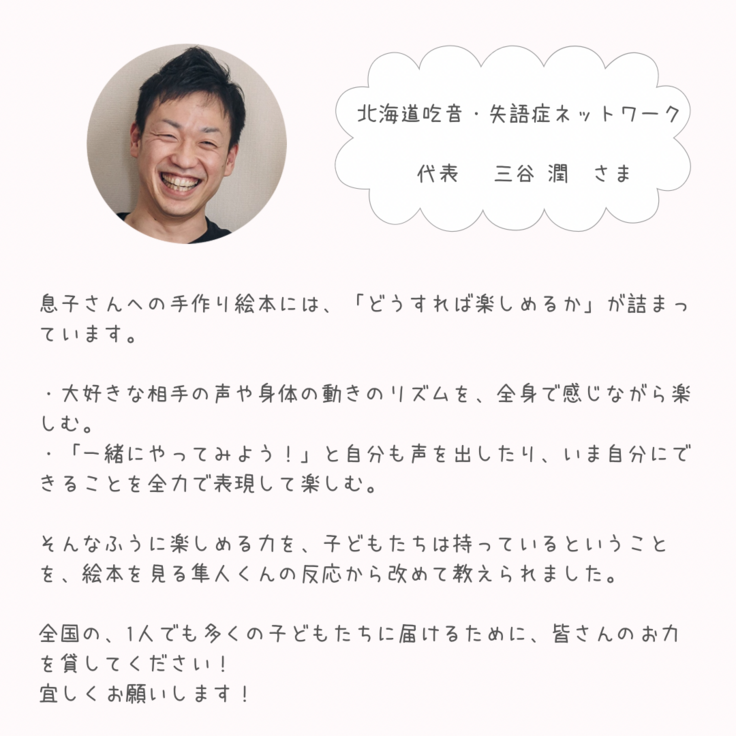 北海道吃音・失語症ネットワーク
代表　三谷 潤　さま
息子さんへの手作り絵本には、「どうすれば楽しめるか」が詰まっ
ています。
・大好きな相手の声や身体の動きのリズムを、全身で感じながら楽
しむ。
・「一緒にやってみよう！」と自分も声を出したり、いま自分にで
きることを全力で表現して楽しむ。
そんなふうに楽しめる力を、子どもたちは持っているということ
を、絵本を見る隼人くんの反応から改めて教えられました。
全国の、1人でも多くの子どもたちに届けるために、皆さんのお力
を貸してください！
宜しくお願いします！